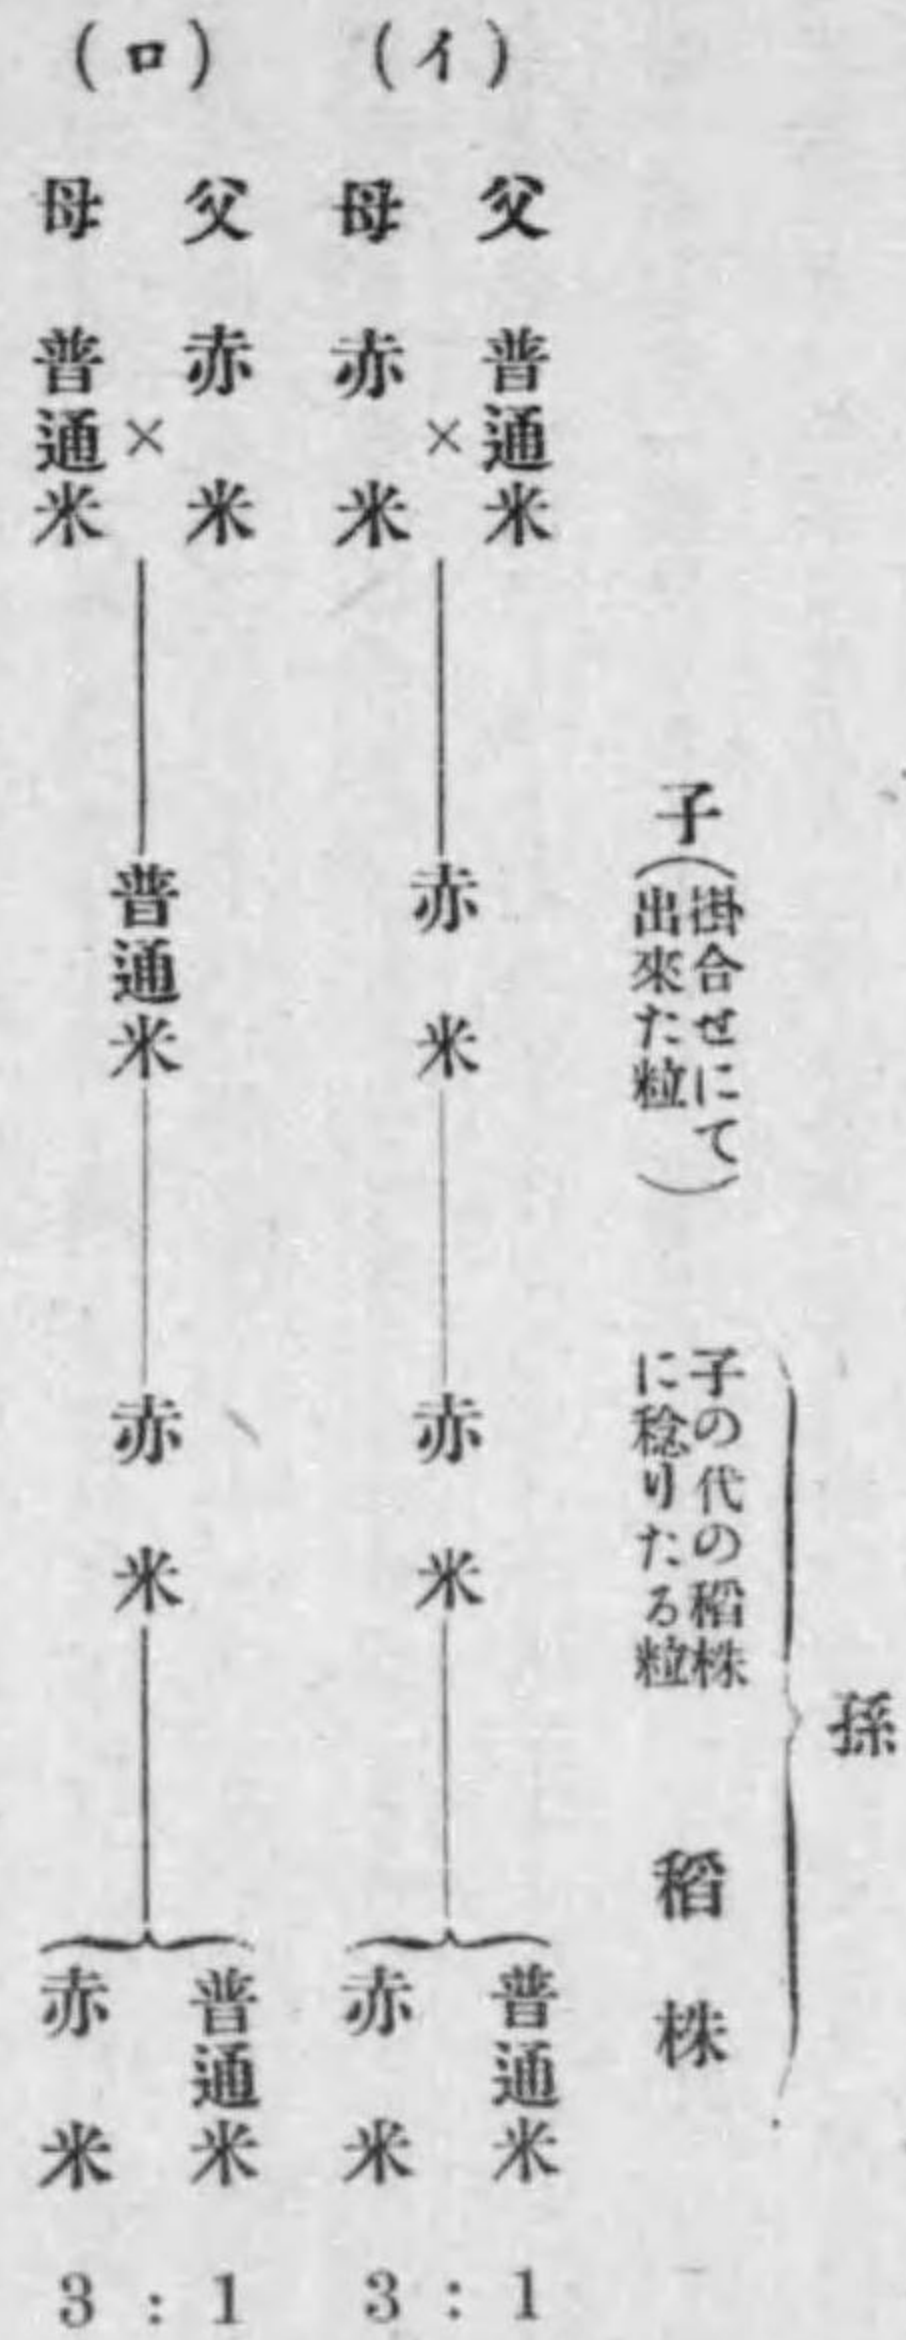 孫
子(掛合せにて
出來た粒)
子の代の稻株
に稔りたる粒
稻株
(イ)
父 普通米
×
母 赤米
赤米
赤米
普通米 1
:
赤米 3
(ロ)
父 赤米
×
母 普通米
普通米
赤米
普通米 1
:
赤米 3